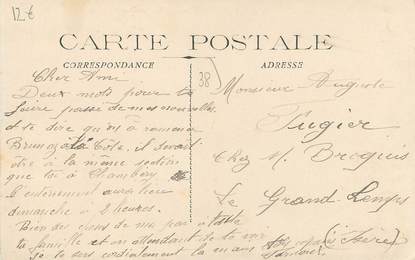 12€
CARTE POSTALE
CORRESPONDANCE
ADRESSE
38
Cher Ami
Deux mots pour te
faire passé de mes nouvelles
et te dire qu'on a ramené
Brun de la Côte, il devait
être à la même section
que toi à Chambéry
l'enterrement aura lieu
dimanche à 2 heures.
Bien des choses de ma part à toute
ta famille et en attendant de te voir
je te serre cordialement la main
Monsieur Auguste
Pugier
Chez M. Broquis
Le Grand Lemps
(Isère)